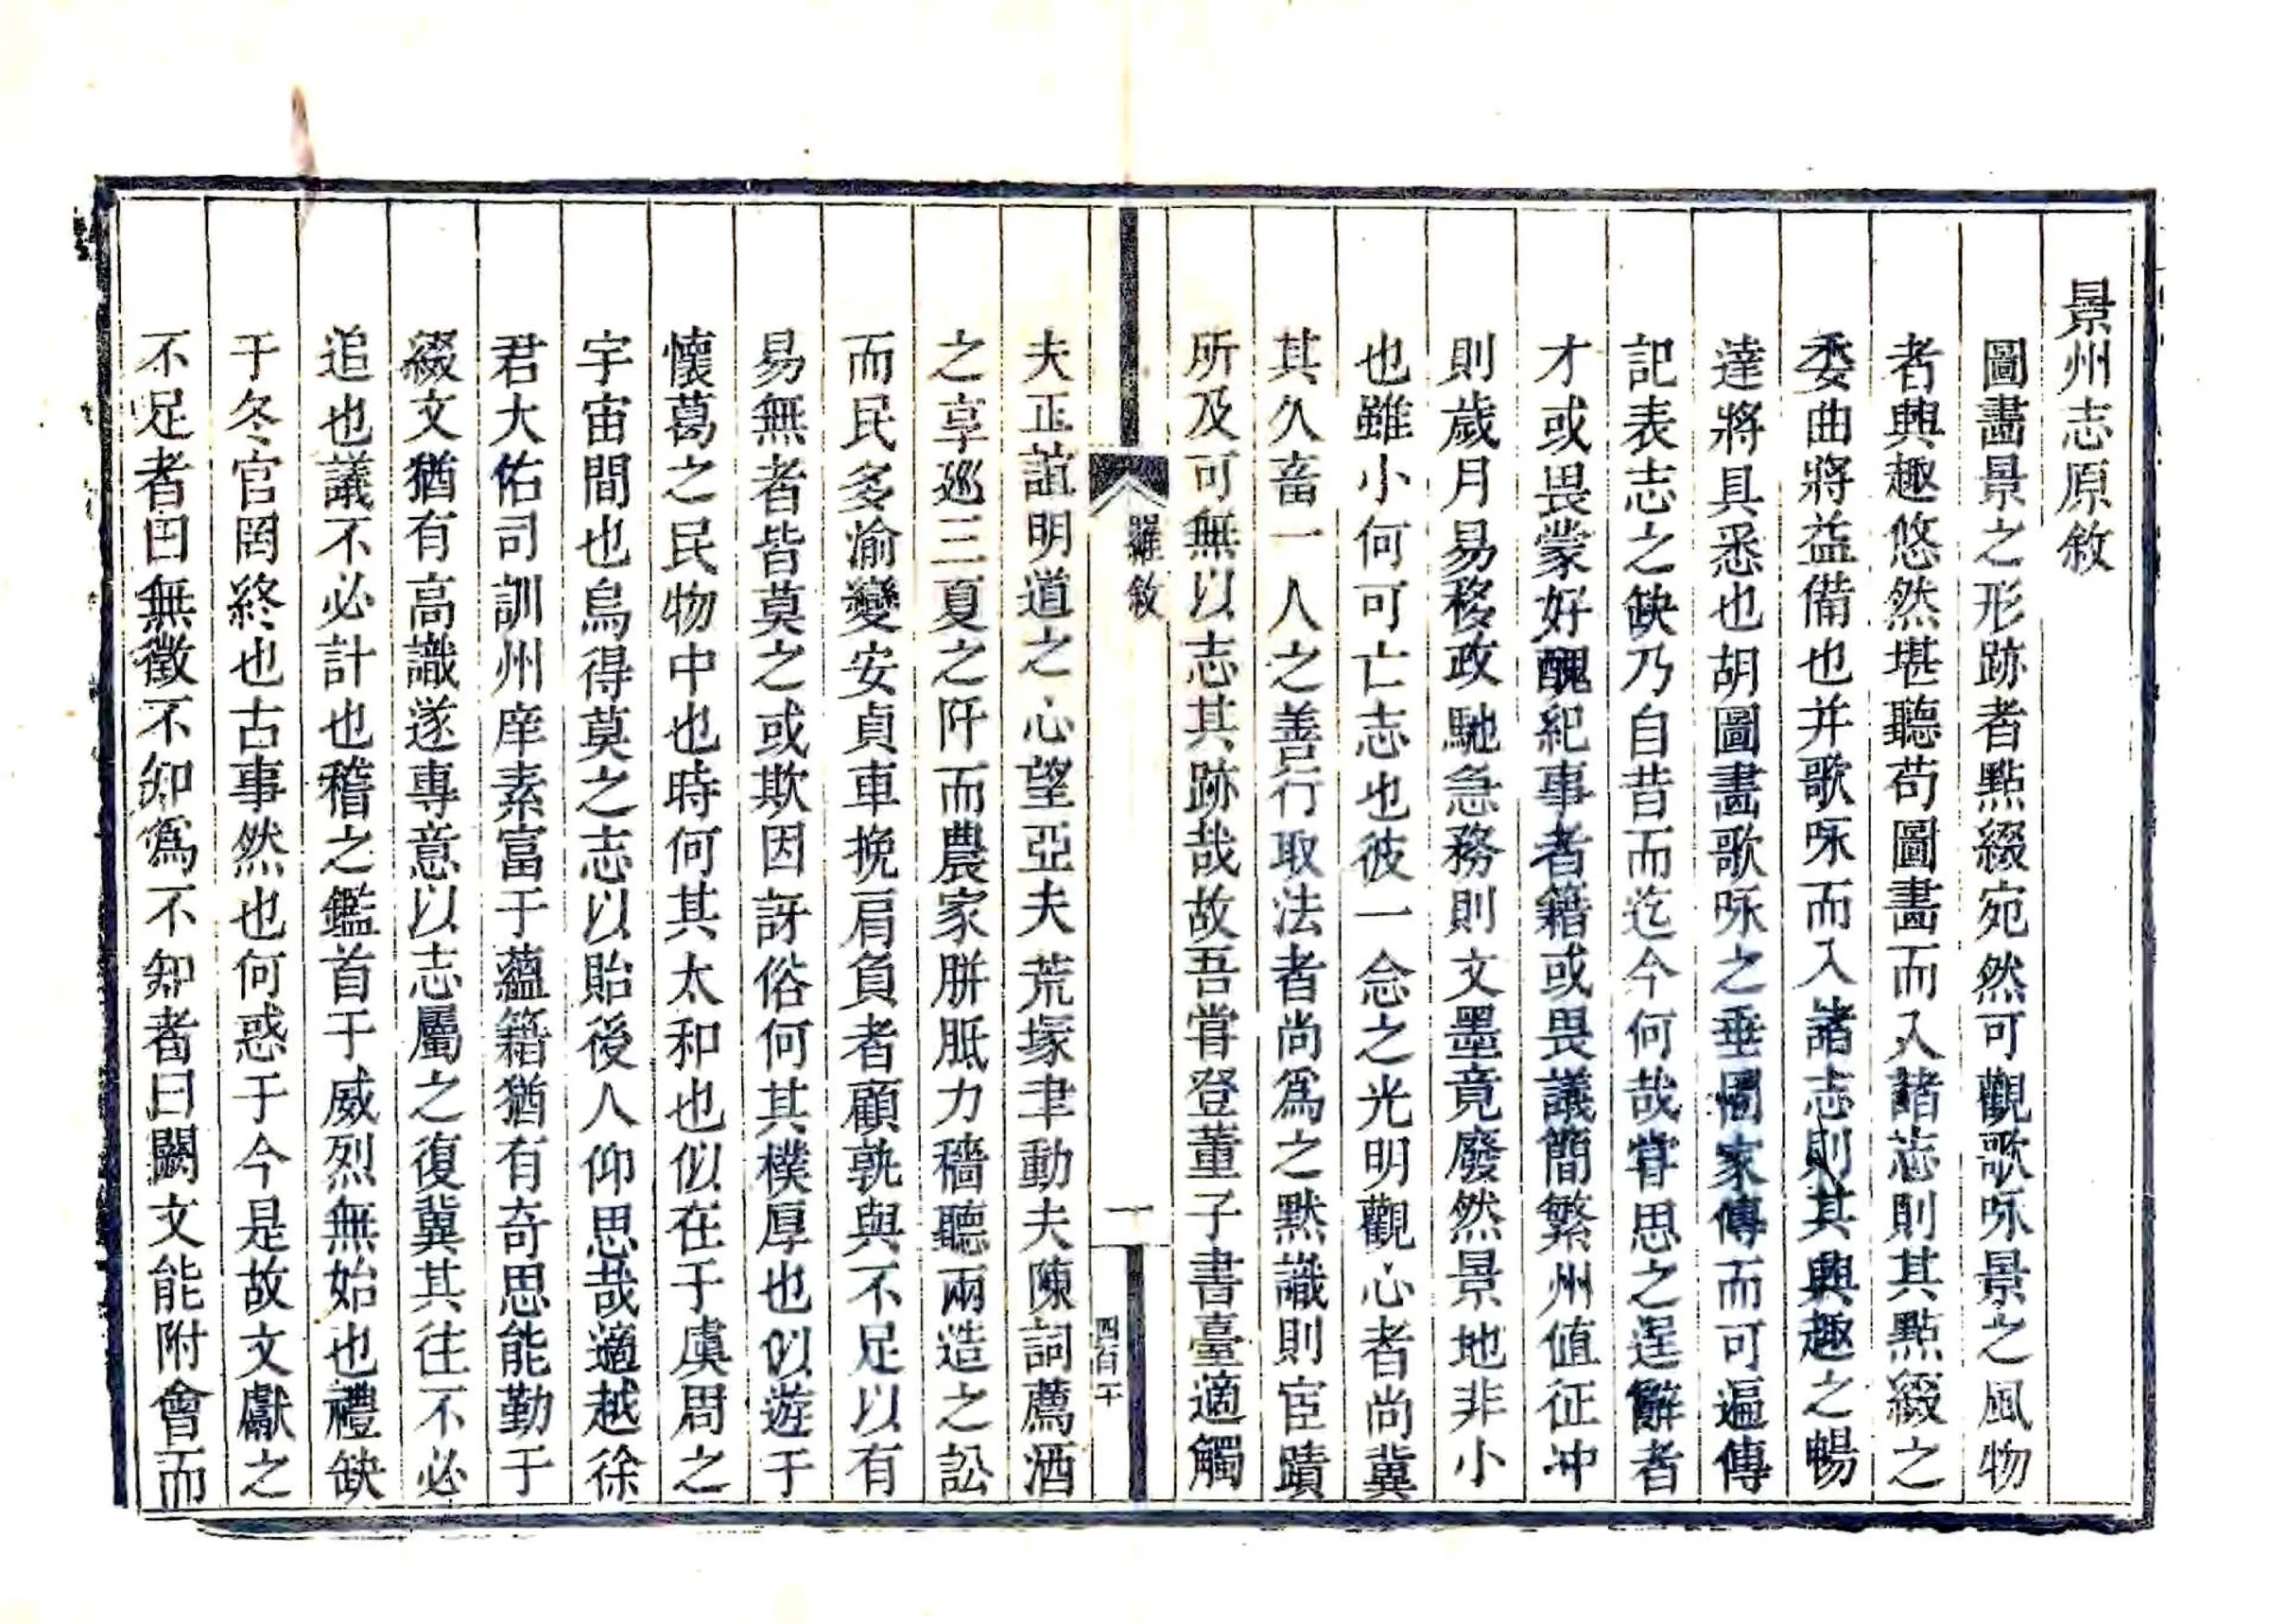 景州志原敘
圖畵景之形跡者點綴宛然可觀歌咏景之風物
者興趣悠然堪聽苟圖畵而入諸志則其點綴之
委曲將益備也并歌咏而入諸志則其興趣之暢
達將具悉也胡圖畵歌咏之垂國家傳而可遍傳
記表志之缺乃自昔而迄今何哉嘗思之逞辭者
才或畏蒙好醜紀事者籍或畏議簡繁州值征冲
則歲月易移政馳急務則文墨竟廢然景地非小
也雖小何可亡志也彼一念之光明觀心者尚冀
其久畜一人之善行取法者尚爲之黙識則宦蹟
所及可無以志其跡哉故吾嘗登董子書臺適觸
羅敘
一
四百二十
夫正誼明道之心望亞夫荒塚聿動夫陳詞薦酒
之享巡三夏之阡而農家胼胝力穡聽兩造之訟
而民多渝變安貞車挽肩負者顧孰與不足以有
易無者皆莫之或欺因訝俗何其樸厚也似遊于
懷葛之民物中也時何其太和也似在于虞周之
宇宙間也烏得莫之志以貽後人仰思哉適越徐
君大佑司訓州庠素富于蘊籍猶有奇思能勤于
綴文猶有高識遂專意以志屬之復冀其往不必
追也議不必計也稽之鑑首于威烈無始也禮缺
于冬官罔終也古事然也何惑于今是故文獻之
不足者曰無徵不知爲不知者曰闕文能附會而